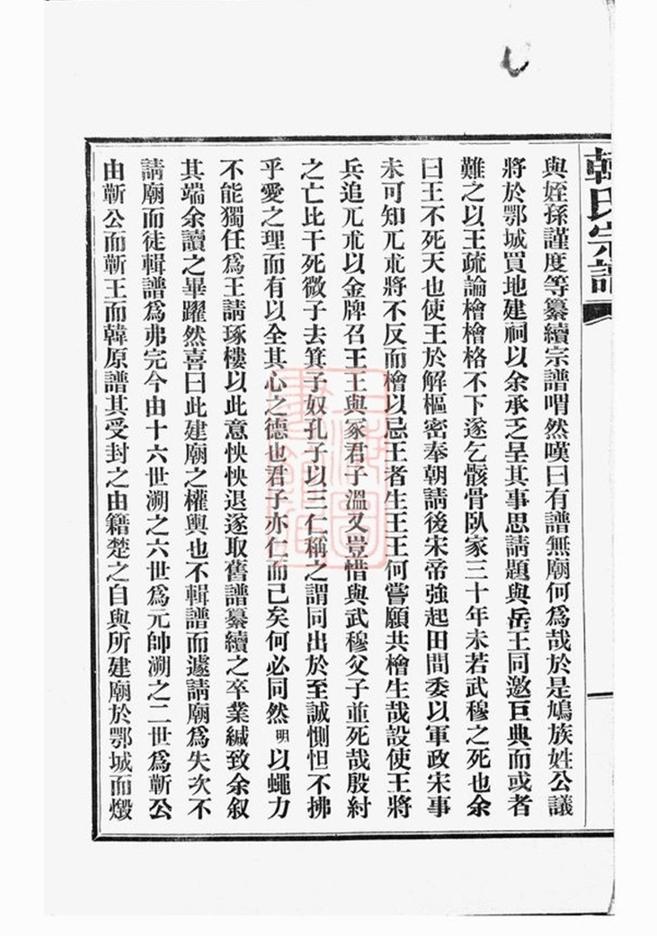 韓氏宗譜
與姪孫謹度等纂續宗譜喟然嘆曰有譜無廟何爲哉於是鳩族姓公議
將於鄂城買地建祠以余承乏呈其事思請題與岳王同邀巨典而或者
難之以王疏論檜檜格不下遂乞骸骨臥家三十年未若武穆之死也余
曰王不死天也使王於解樞密奉朝請後宋帝強起田間委以軍政宋事
未可知兀朮將不反而檜以忌王者生王王何嘗願共檜生哉設使王將
兵追兀朮以金牌召王王與冢君子溫又豈惜與武穆父子並死哉殷紂
之亡比干死微子去箕子奴孔子以三仁稱之謂同出於至誠惻怛不拂
乎愛之理而有以全其心之德也君子亦仁而已矣何必同然明以蠅力
不能獨任爲王請琢樓以此意怏怏退遂取舊譜纂續之卒業緘致余叙
其端余讀之畢躍然喜曰此建廟之權輿也不輯譜而遽請廟爲失次不
請廟而徒輯譜爲弗完今由十六世溯之六世爲元帥溯之二世爲蘄公
由蘄公而蘄王而韓原譜其受封之由籍楚之自與所建廟於鄂城而燬